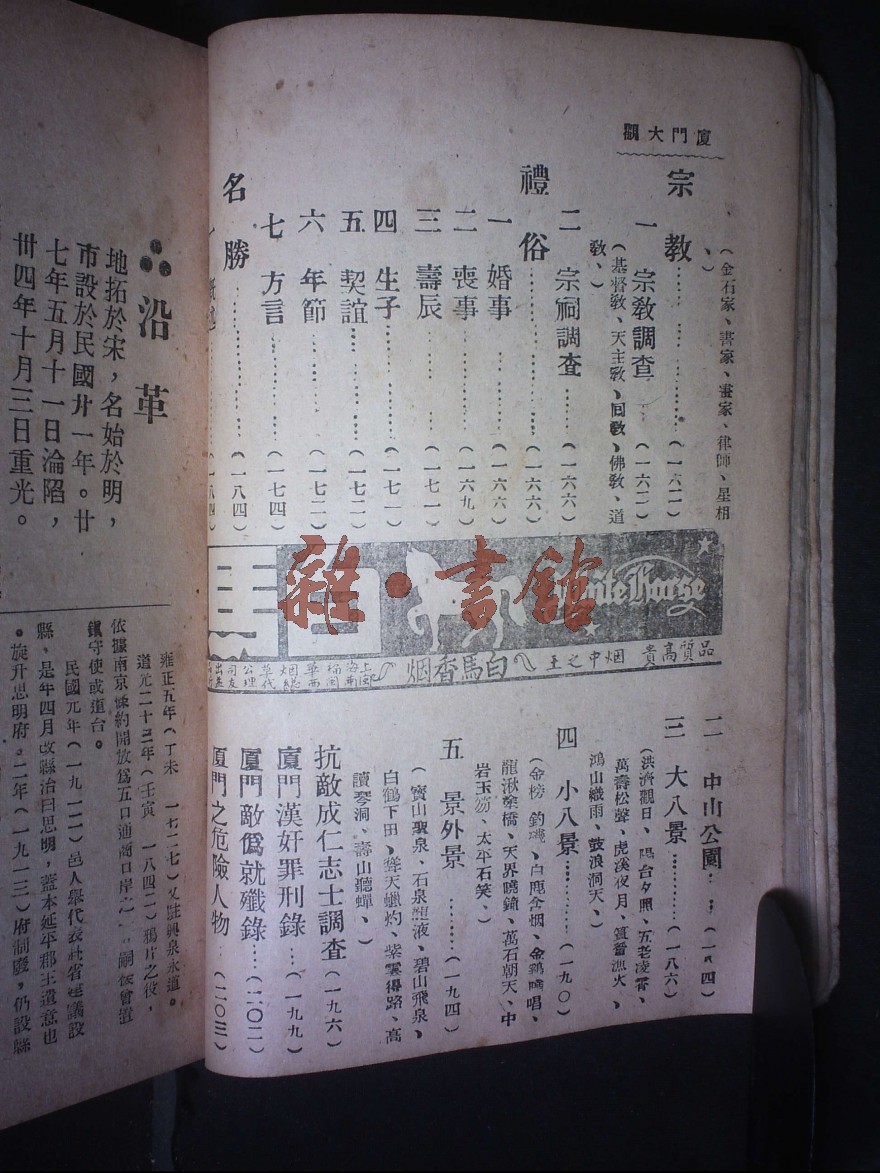 廈門大觀
、(金石家、書家、畫家、律師、星相
、)
宗教……(一六二)
一 宗敎調查…(一六二)
(基督敎、天主敎、回敎、佛敎、道
敎、)
二 宗祠調查……(一六六)
禮俗……(一六六)
一 婚事……(一六六)
二 喪事……(一六九)
三 壽辰……(一七一)
四 生子……(一七一)
五 契誼……(一七二)
六 年節……(一七二)
七 方言……(一七四)
名勝……(一八四)
一 (一八四)
White Horse
白馬
品質高貴 烟中之王 白馬香烟
二 中山公園……(一八四)
三 大八景……(一八六)
(洪濟觀日、陽台夕照、五老凌霄、
萬壽松聲、虎溪夜月、篔簹漁火、
鴻山織雨、鼓浪洞天、)
四 小八景……(一九〇)
(金榜釣磯、白鹿含烟、金鷄曉唱、
龍湫 橋、天界曉鐘、萬石朝天、中
岩玉笏、太平石笑、)
五 景外景……(一九四)
(寶山聖泉、石泉 液、碧山飛泉、
白鶴下田、 天蠟灼、紫雲得路、高
讀琴洞、壽山聽蟬、)
抗敵成仁志士調查(一九六)
廈門漢奸罪刑錄…(一九九)
廈門敵僞就殲錄…(二〇二)
廈門之危險人物…(二〇三)
沿革
地拓於宋，名始於明，
市設於民國廿一年。廿
七年五月十一日淪陷，
卅四年十月三日重光。
雍正五年(丁未 一七二七)又駐興泉永道。
道光二十三年(壬寅 一八四二)鴉片之役，
依據南京條約開放爲五口通商口岸之一，嗣後曾置
鎮守使或道台。
民國元年(一九一二)邑人舉代表赴省 議設
縣、是年四月改縣治曰思明，蓋本延平郡王遺意也
。旋升思明府。二年(一九一三)府制廢，仍設縣
雜·書館